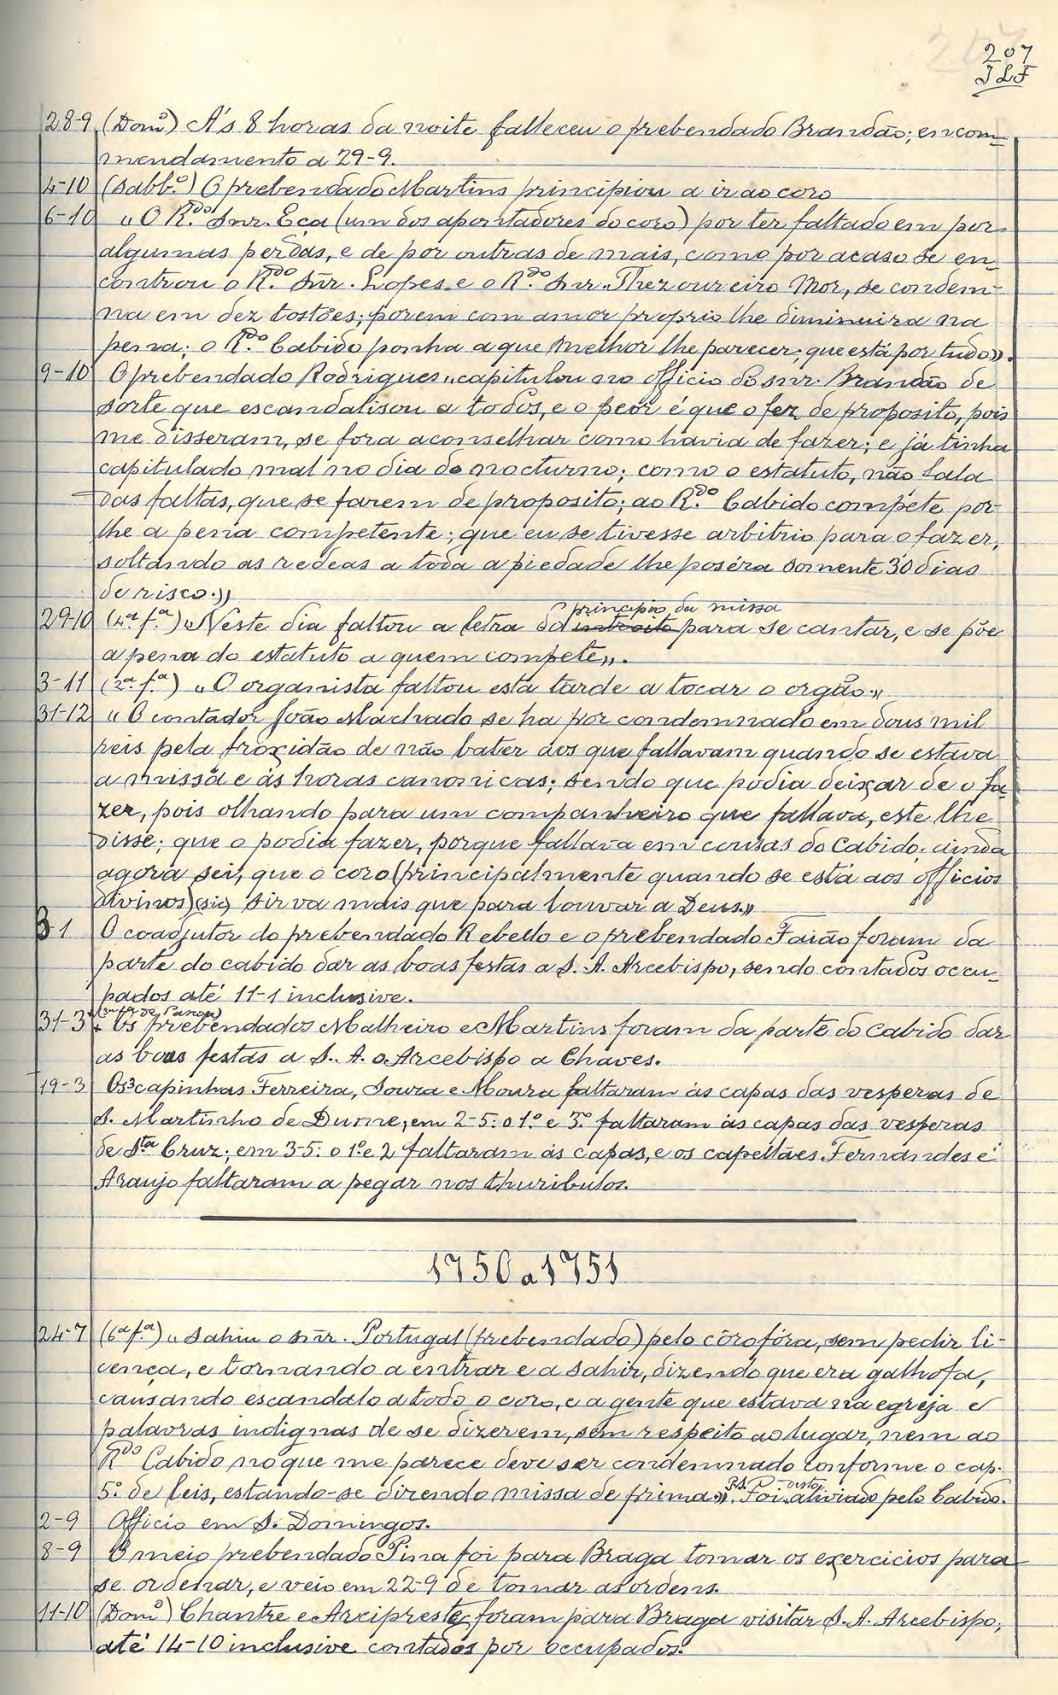 207
JLF
28-9 (Domº) Ás 8 horas da noite falleceu o prebendado Brandão; encom-
mendamento a 29-9.
4-10 (Sabb.º) O prebendado Martins principiou a ir ao coro
6-10 "O R.do Snr. Eça (um dos apontadores do coro) por ter faltado em por
algumas perdas, e de por outras de mais, como por acaso se en-
controu o R.do Snr. Lopes e o R.do Snr. Thezoureiro Mor, se condem-
na em dez tostões; porem com amor proprio lhe diminuira na
pena; o R.do Cabido ponha a que melhor lhe parecer; que está por tudo".
9-10 O prebendado Rodrigues "capitulou no officio do snr. Brandão de
sorte que escandalisou a todos, e o peor é que o fez de proposito, pois
me disseram, se fora aconselhar como havia de fazer; e já tinha
capitulado mal no dia do nocturno; como o estatuto, não fala
das faltas, que se fazem de proposito; ao R.do Cabido compéte pôr-
lhe a pena competente; que eu se tivesse arbitrio para o fazer,
soltando as redeas a toda a piedade lhe poséra somente 30 dias
de risco."
29-10 (4ª f.ª) "Neste dia faltou a letra do introito principio da missa para se cantar, e se põe
a pena do estatuto a quem compete".
3-11 (2ª f.ª) "O organista faltou esta tarde a tocar o orgão."
31-12 "O contador João Machado se ha por condemnado em dous mil
reis pela froxidão de não bater aos que fallavam quando se estava
a missa e ás horas canonicas; sendo que podia deixar de o fa-
zer, pois olhando para um companheiro que fallava, este lhe
disse; que o podia fazer, porque fallava em cousas do Cabido; ainda
agora sei, que o coro (principalmente quando se está aos officios
divinos) (sic) sirva mais que para louvar a Deus."
3-1 O coadjutor do prebendado Rebello e o prebendado Faião foram da
parte do cabido dar as boas festas a S. A. Arcebispo, sendo contados occu-
pados até 11-1 inclusive.
31-3 Os prebendados Malheiro e Martins foram da parte do Cabido dar
as boas festas a S. A. o Arcebispo a Chaves.
19-3 Os 3 capinhas Ferreira, Souza e Moura faltaram ás capas das vesperas de
S. Martinho de Dume; em 2-5: o 1º e 3º faltaram ás capas das vesperas
de Sta Cruz; em 3-5: o 1º e 2 faltaram ás capas, e os capellães Fernandes e
Araujo faltaram a pegar nos thuribulos.
1750 a 1751
24-7 (6ª f.ª) "Sahiu o snr. Portugal (prebendado) pelo côro fóra, sem pedir li-
cença, e tornando a entrar e a sahir, dizendo que era galhofa,
causando escandalo a todo o coro, e a gente que estava na egreja e
palavras indignas de se dizerem, sem respeito ao lugar, nem ao
R.do Cabido no que me parece deve ser condemnado conforme o cap.
5º de leis, estando-se dizendo missa de prima". Foi aliviado pelo Cabido.
2-9 Officio em S. Domingos.
8-9 O meio prebendado Pina foi para Braga tomar os exercicios para
se ordenar, e veio em 22-9 de tomar as ordens.
11-10 (Domº) Chantre e Arcipreste, foram para Braga visitar S. A. Arcebispo,
até 14-10 inclusive contados por occupados.